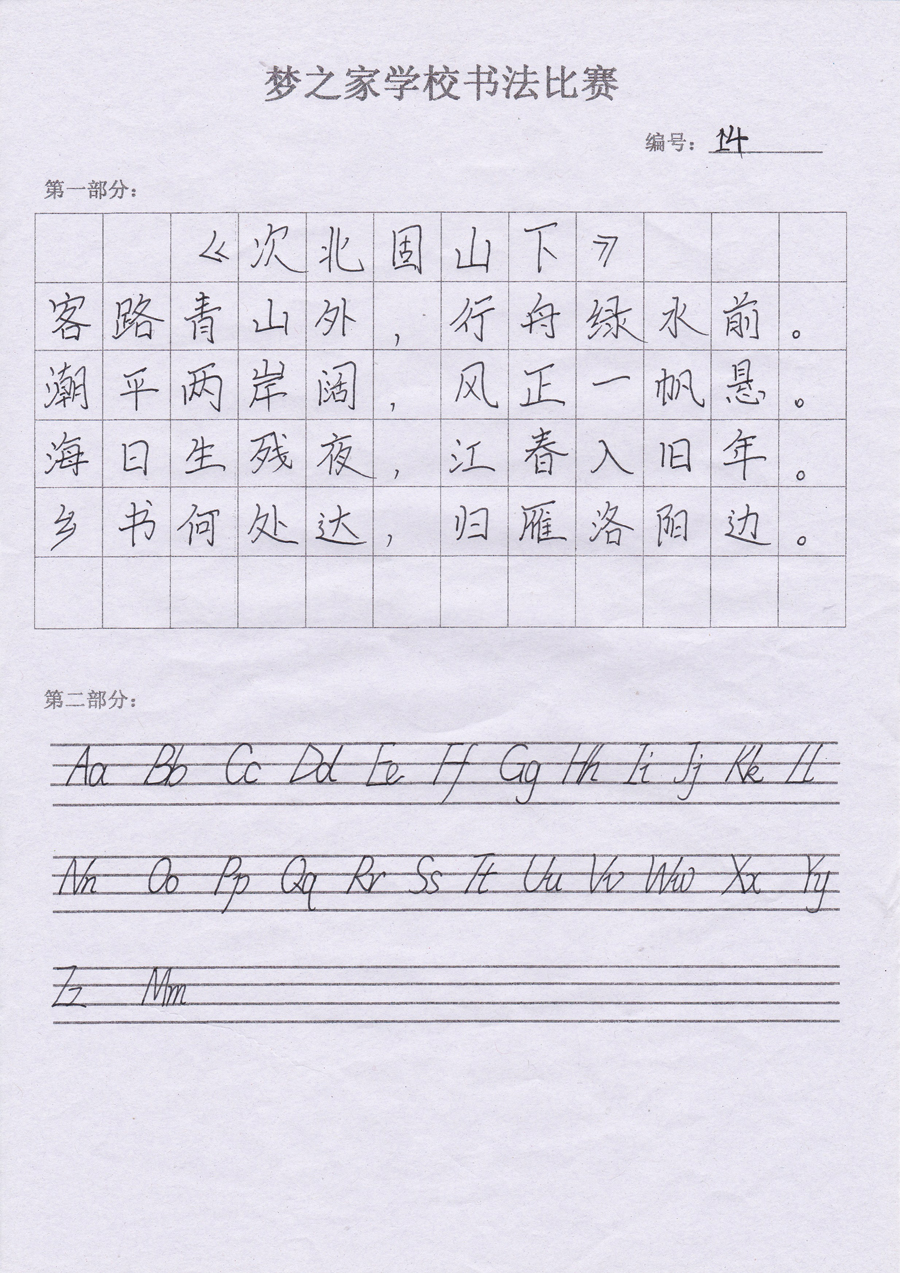 梦之家学校书法比赛
编号：14
第一部分：
《次北固山下》
客路青山外，行舟绿水前。
潮平两岸阔，风正一帆悬。
海日生残夜，江春入旧年。
乡书何处达，归雁洛阳边。
第二部分：
Aa Bb Cc Dd Ee Ff Gg Hh Ii Jj Kk Ll
Nn Oo Pp Qq Rr Ss Tt Uu Vv Ww Xx Yy
Zz Mm